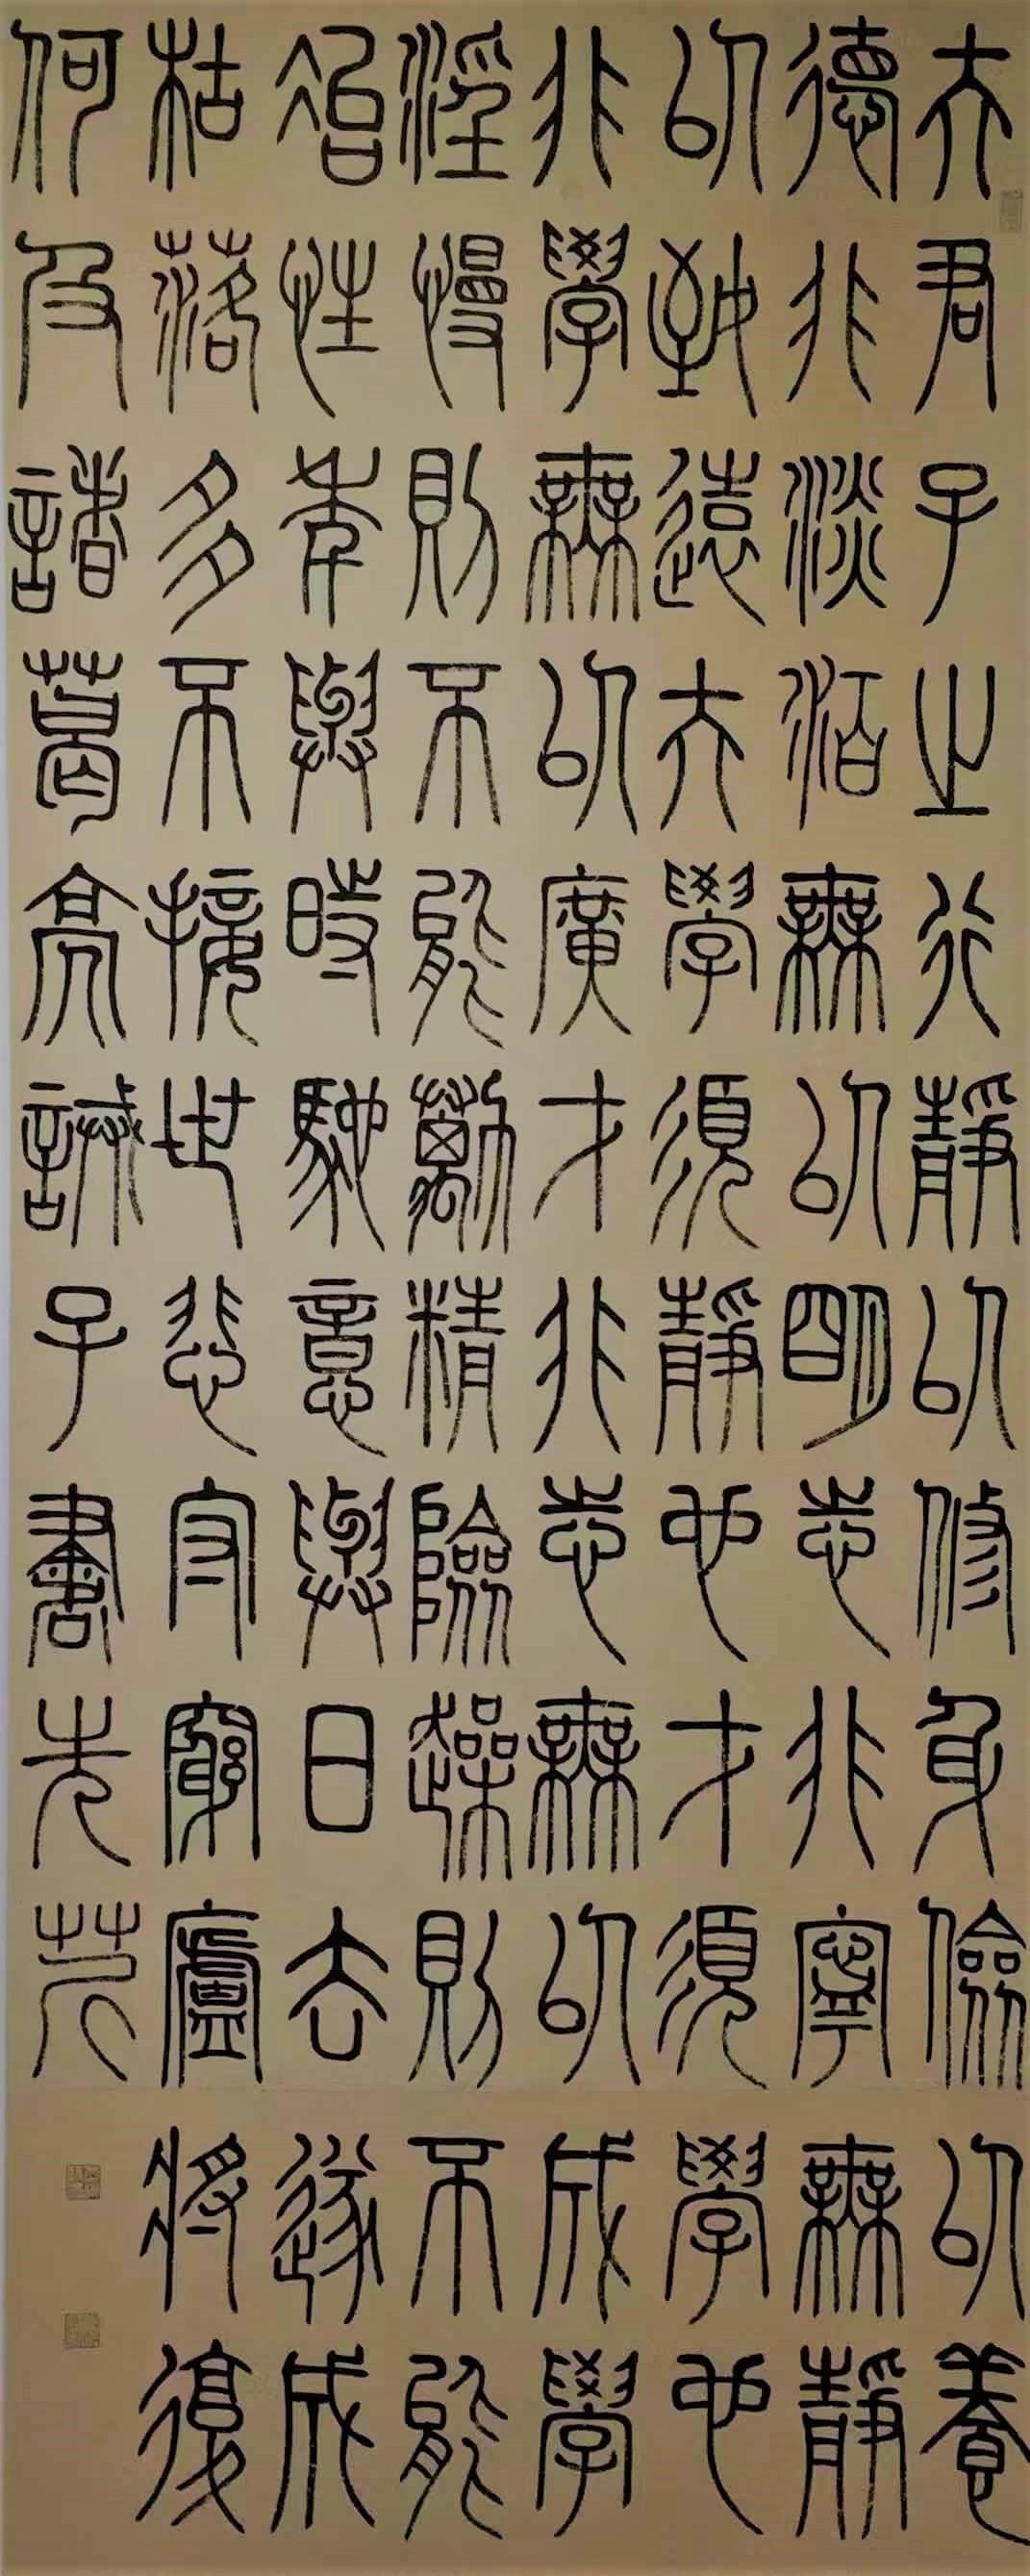 夫君子之行靜以修身儉以養
德非淡泊無以明志非寧無靜
以致遠夫學須靜也才須學也
非學無以廣才非志無以成學
淫慢則不能勵精險躁則不能
冶性年與時馳意與日去遂成
枯落多不接世悲守窮廬將復
何及諸葛亮誡子書先